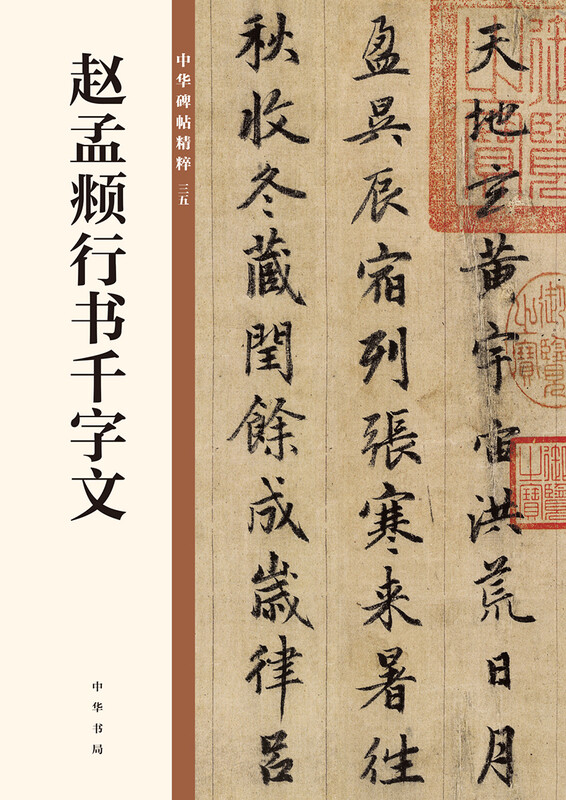 赵孟𫖯行书千字文
中华碑帖精粹 三五
中华书局
天地玄黄宇宙洪荒日月
盈昃辰宿列張寒来暑徃
秋收冬藏閏餘成歲律吕